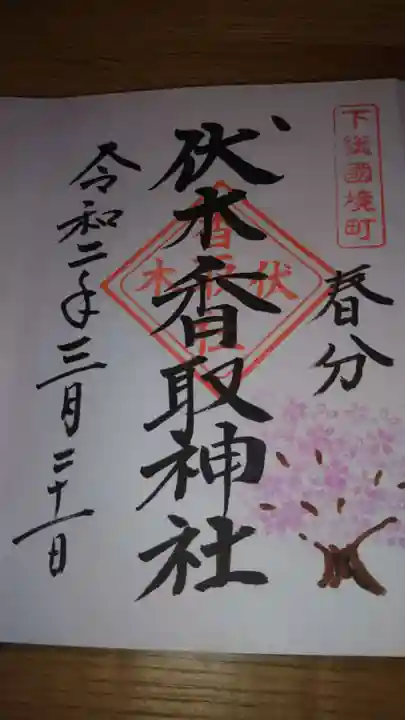 下総國境町
春分
伏木香取神社
伏木
香取
社
令和二年三月二十一日